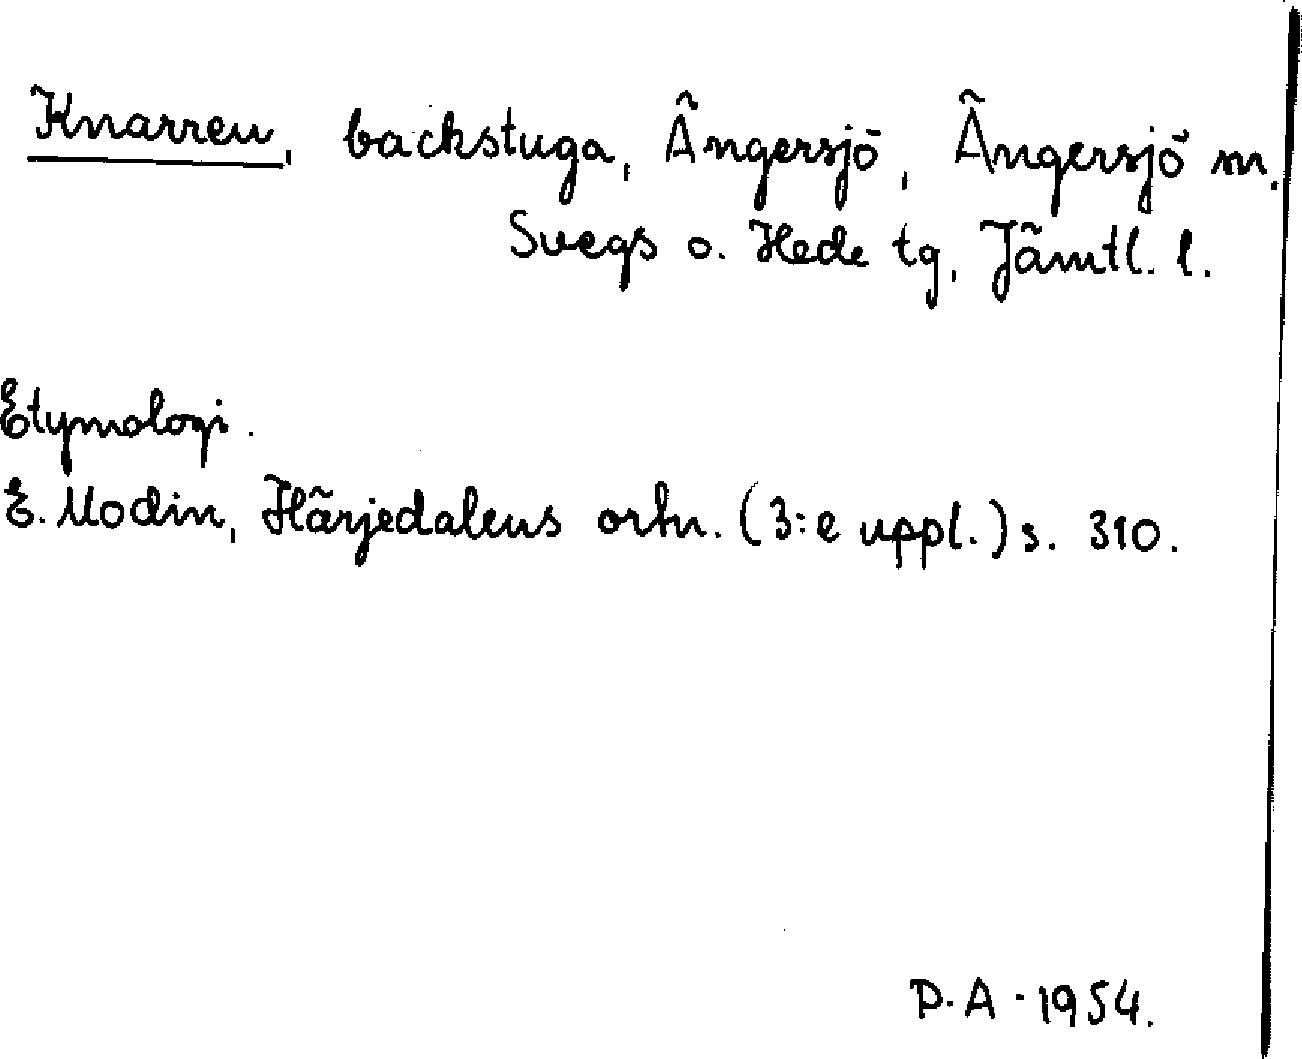 Knarren, backstuga, Ängersjö, Ängersjö m.
Svegs o. Hede tg, Jämtl. l.
Etymologi.
E. Modin, Härjedalens ortn. (3:e uppl.) s. 310.
D. A. 1954.